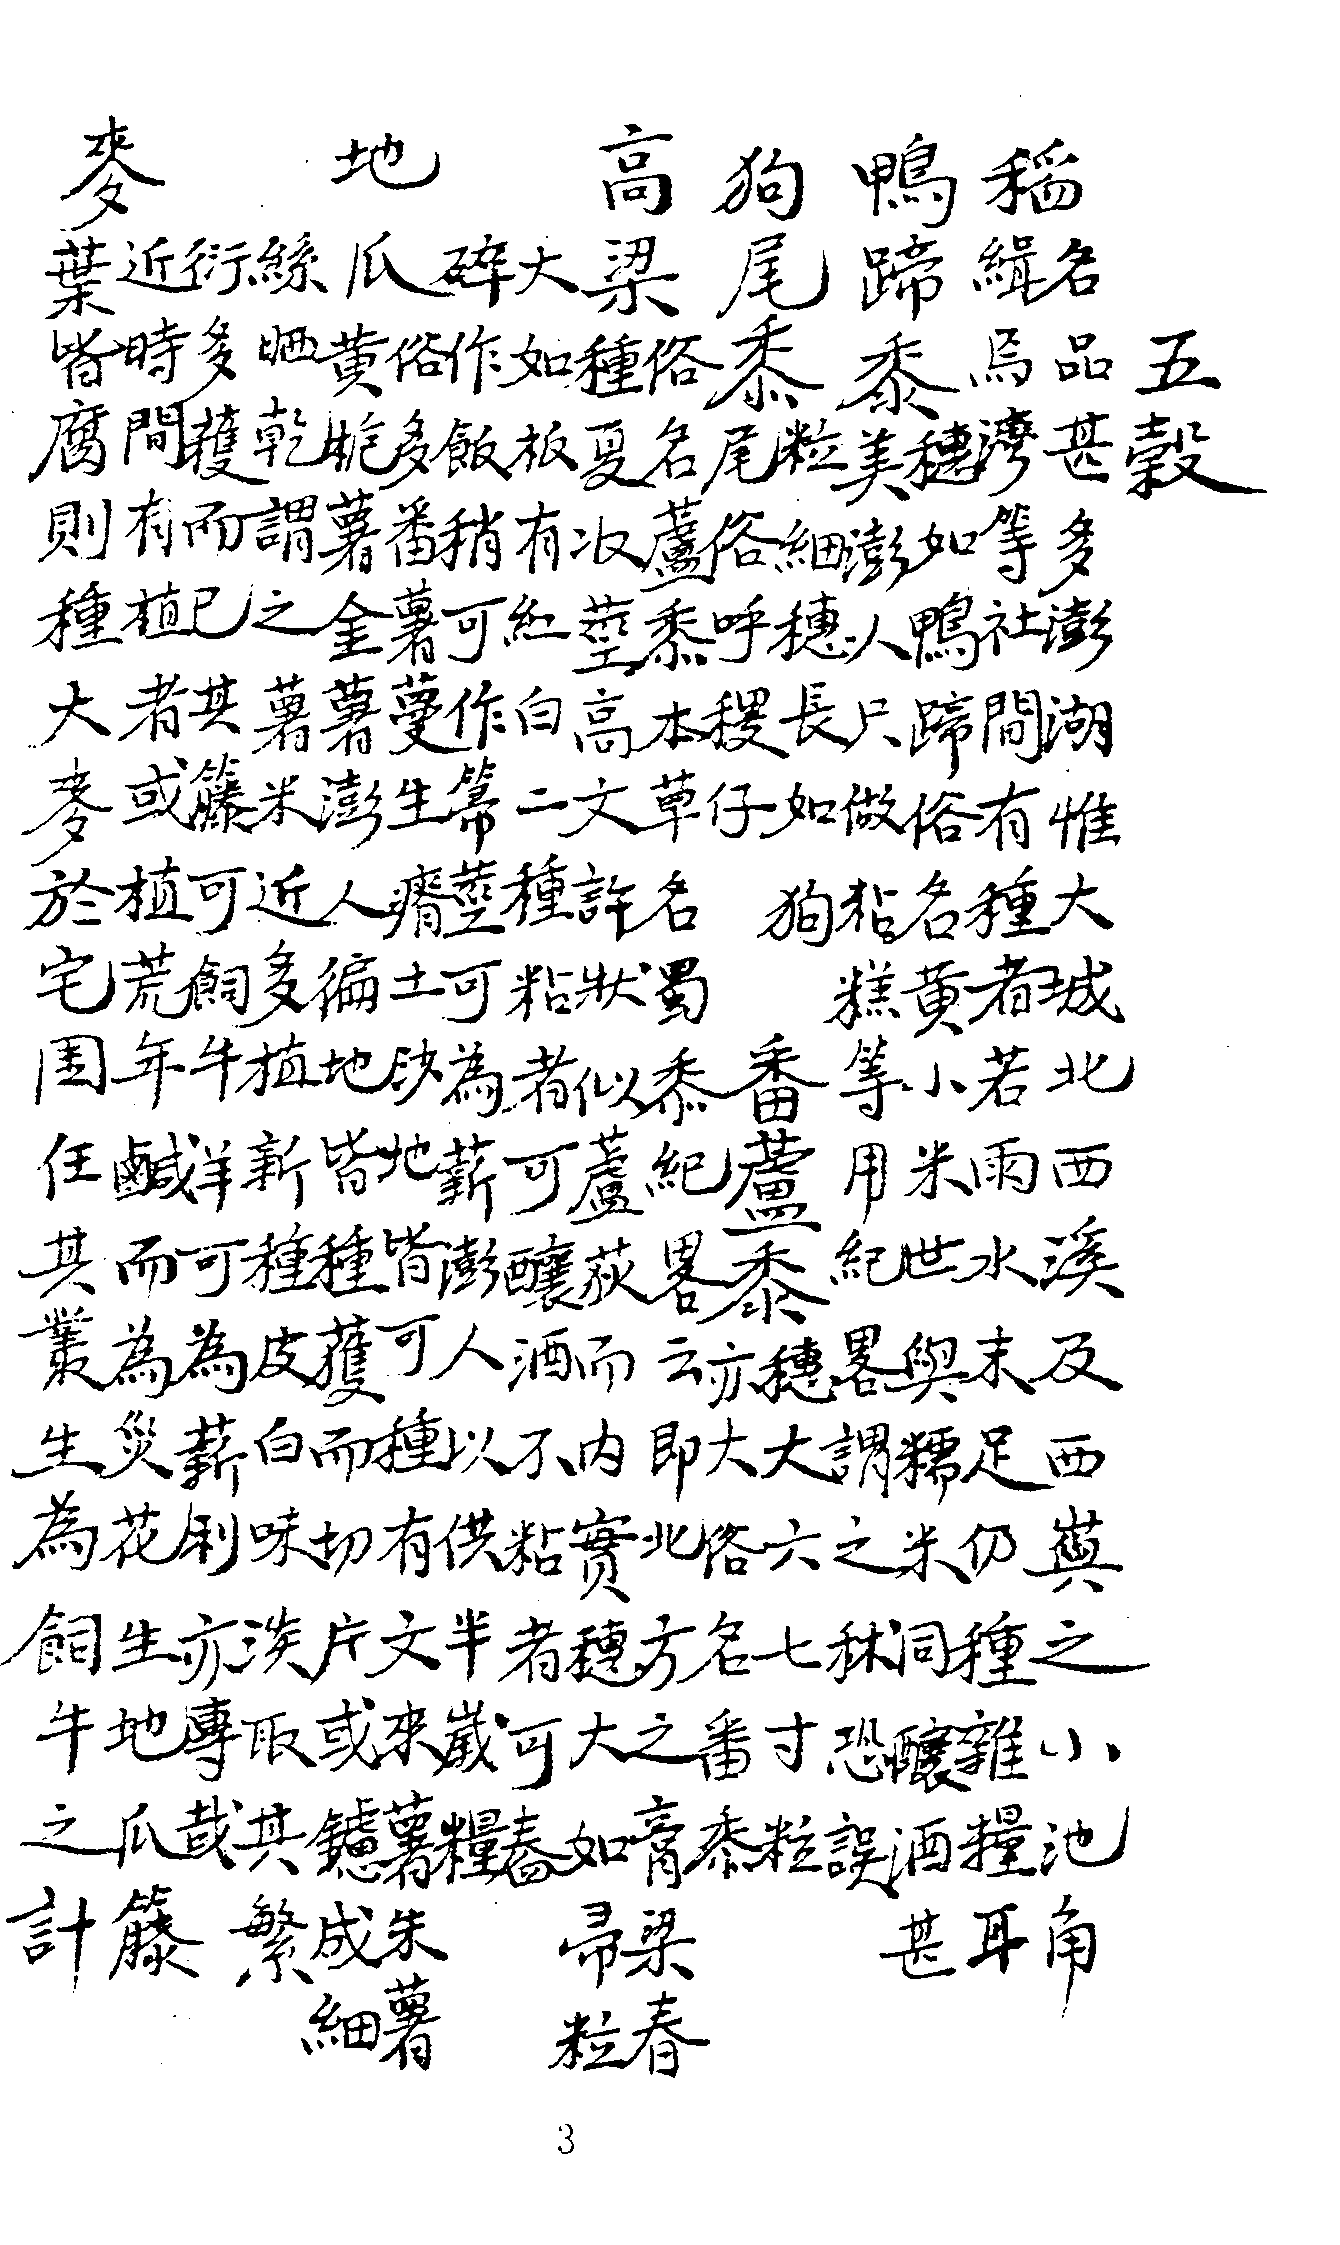 五穀
稻
名品甚多澎湖惟大城北西溪及西嶼之小池角
緝馬灣等社間有種者若雨水末足仍種雜糧耳
鴨蹄黍
穗如鴨蹄俗名黃小米世與糯米同釀酒甚
美澎人尺做粘糕等用紀畧謂之秫恐誤
狗尾黍
粒細穗長如狗
尾俗呼稷仔
番蘆黍
穗大大六七寸粒
亦大俗名番黍
高梁
俗名蘆黍本草名蜀黍紀畧云即北方之膏梁春
種夏收莖高文許狀似蘆荻而內實穗大如帚粒
大如板有紅白二種粘者可釀酒不粘者可舂
碎作飯稍可作箒莖可為薪澎人以供半歲糧
地瓜
俗多番薯蔓生瘠土砂地皆可種有文來薯朱薯
黃肔薯金薯澎人徧地皆種穫而切片或鑢成細
絲晒乾謂之薯米近多植新種皮白味淡取其繁
衍多穫而已其籐可飼牛羊可為薪利亦溥哉
麥
近時間有植者或植荒年鹹而為災花生地瓜籐
葉皆腐則種大麥於宅園任其叢生為飼牛之計
3